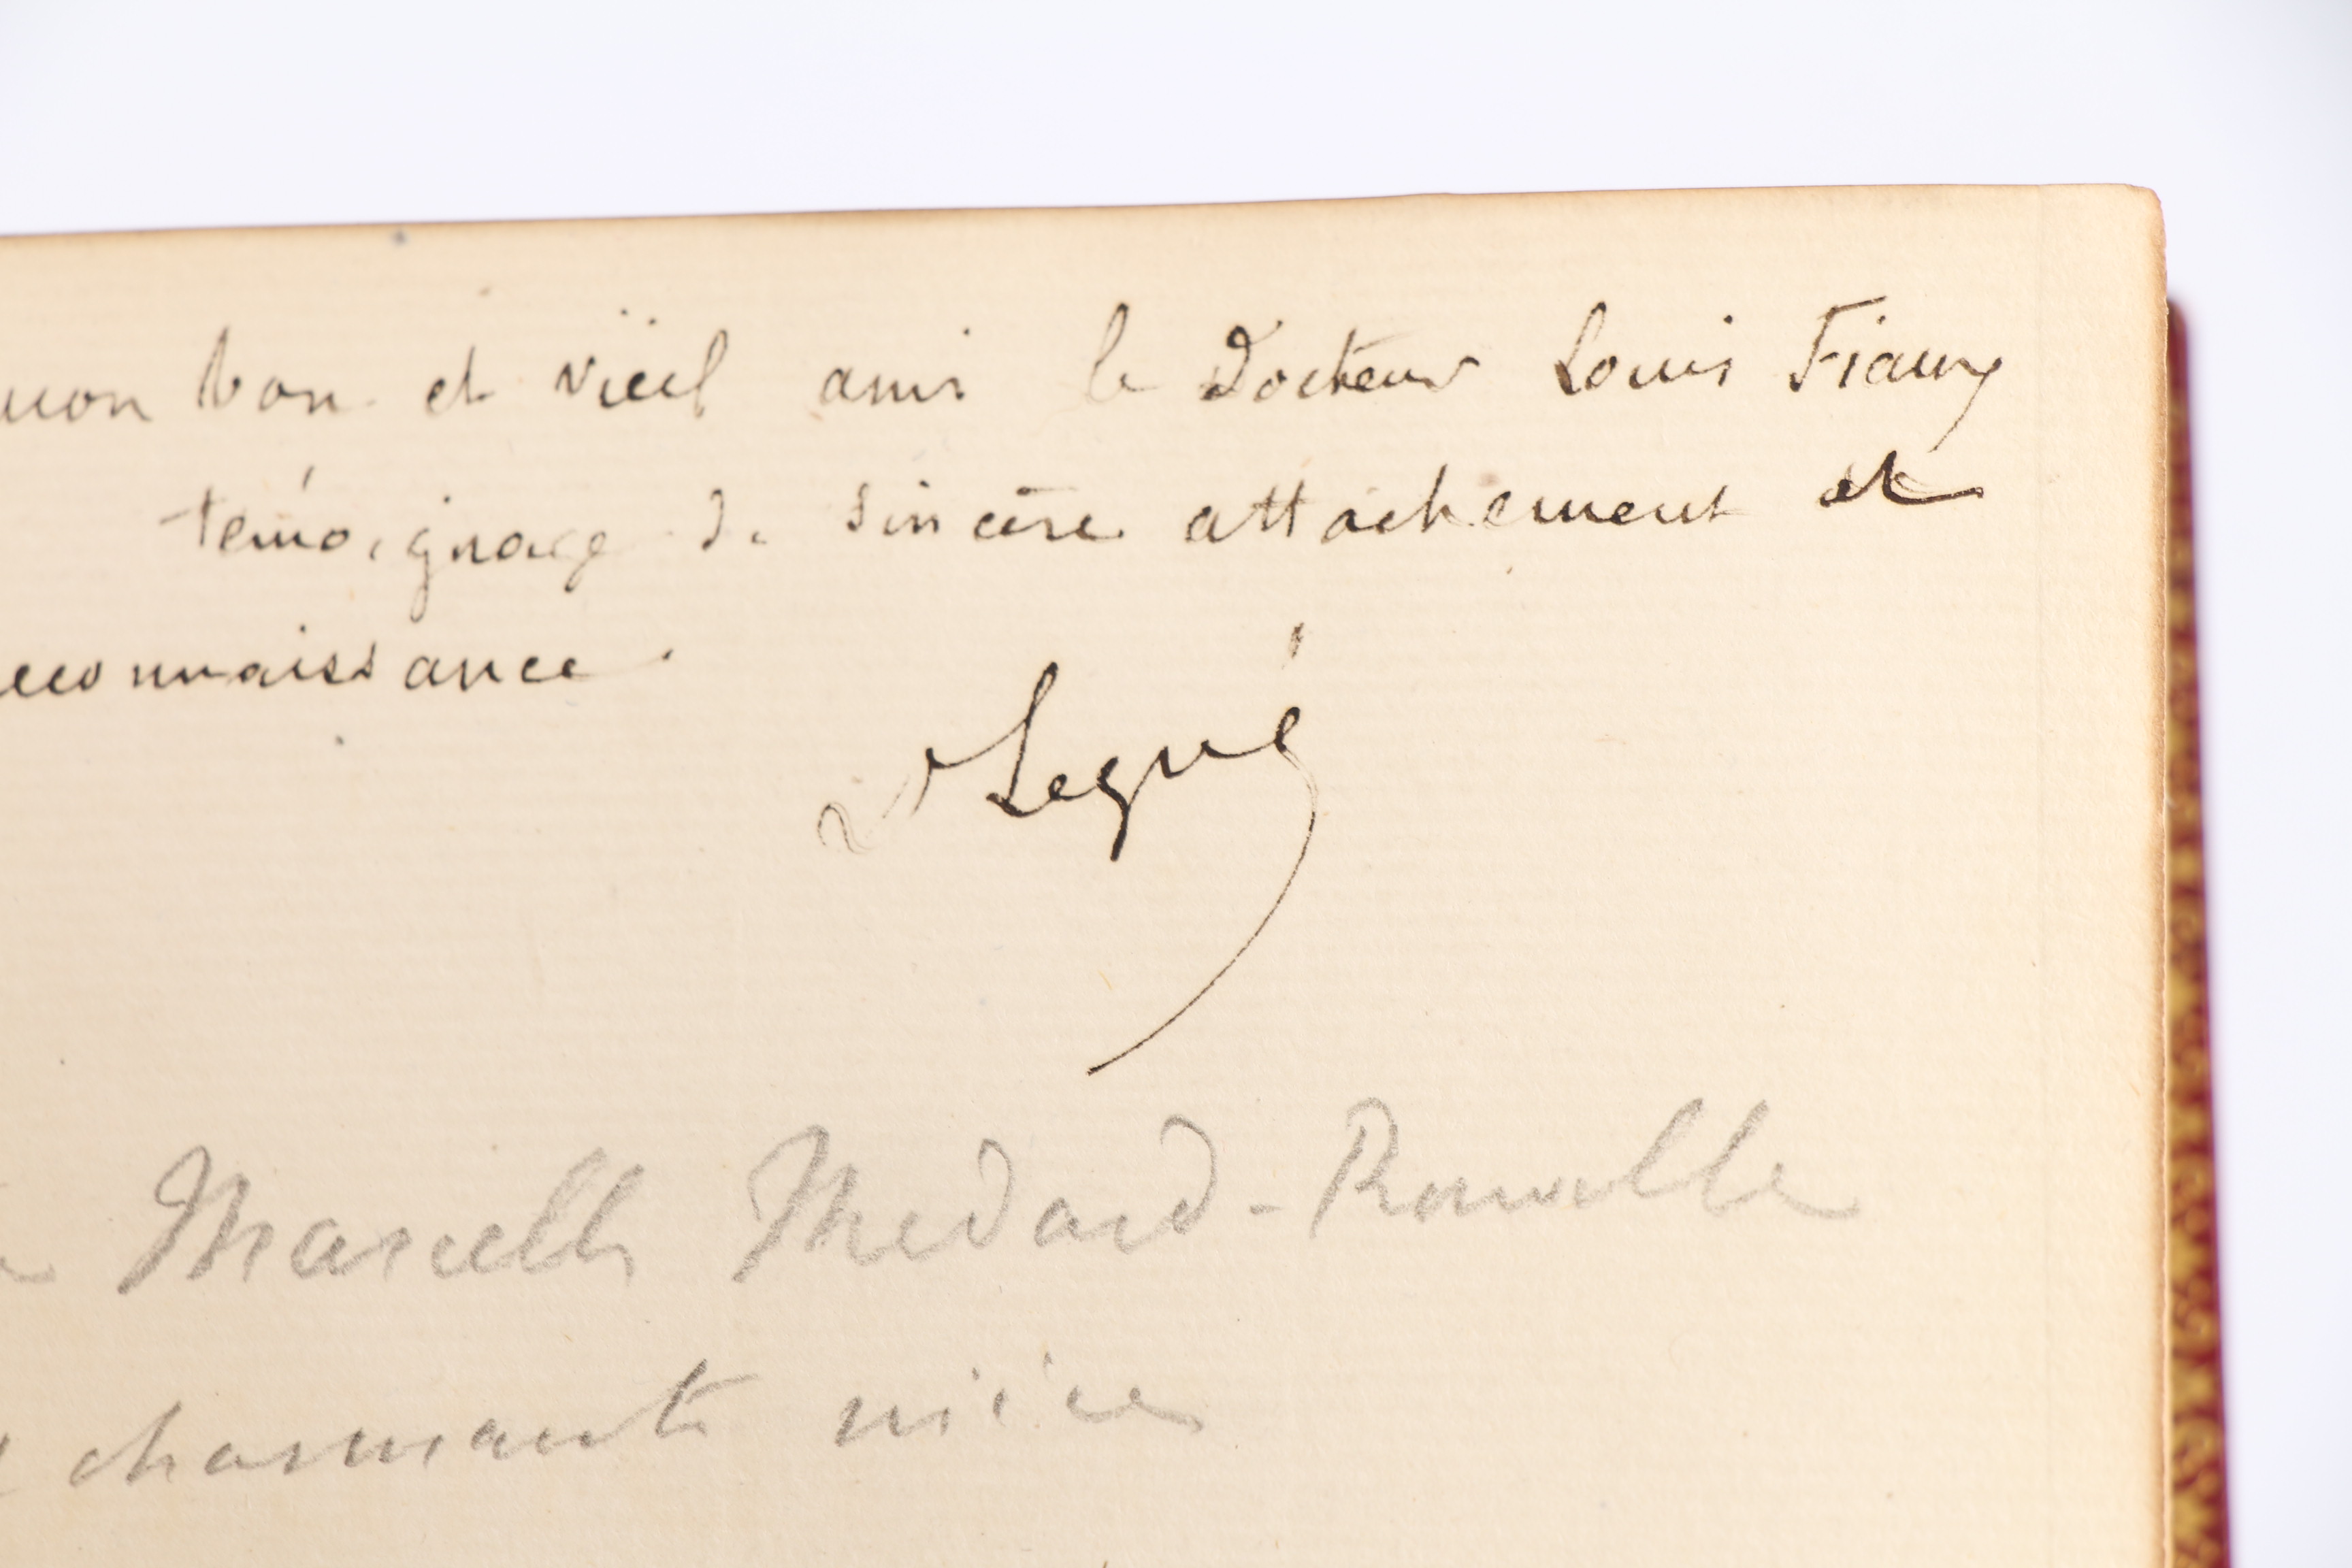 mon bon et vieil ami le Docteur Louis Fiaux
témoignage de sincère attachement et
reconnaissance.
Dr Legué
Marcelle Medard-Rouvelle
charmante nièce